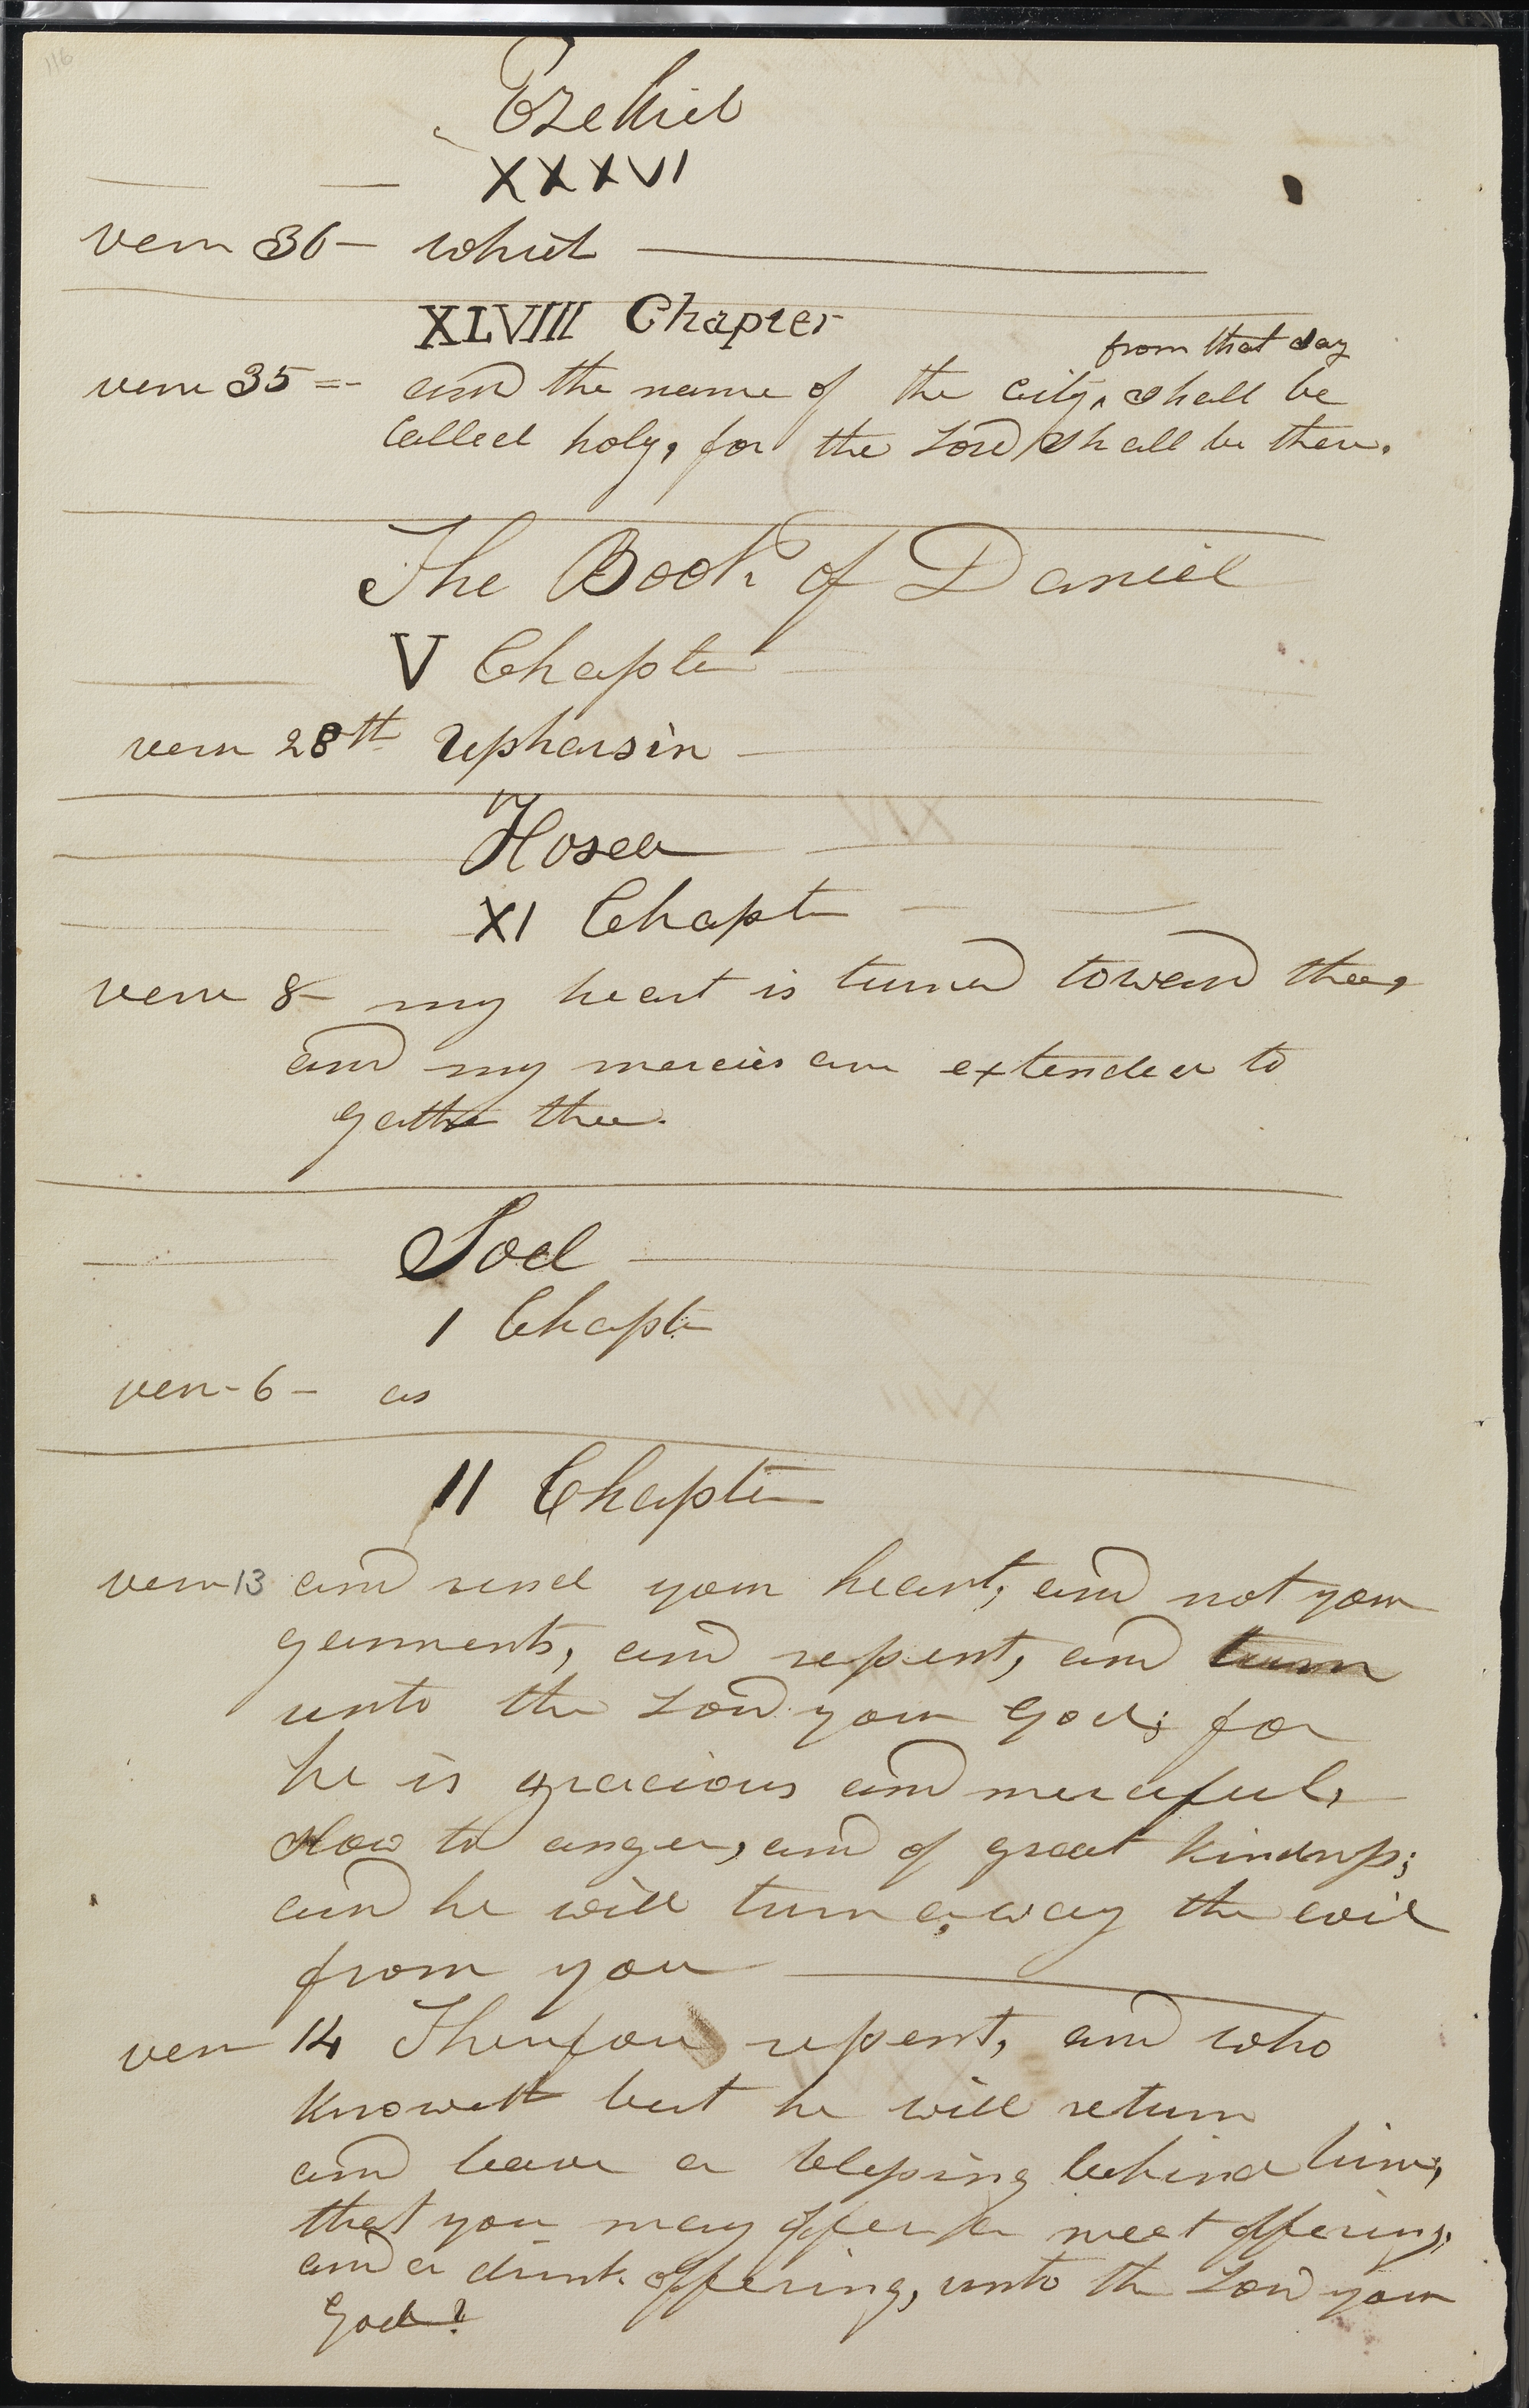 116
Ezekiel
XXXVI
verse 36 - which
XLVIII Chapter
from that day
verse 35 = - and the name of the city, ^ shall be
Called holy, for the Lord shall be there.
The Book of Daniel
V Chapter
verse 28th Upharsin
Hosea
XI Chapter
verse 8 - my heart is turned toward thee,
and my mercies are extended to
gather thee.
Joel
1 Chapter
verse - 6 - as
11 Chapter
verse 13 and rend your heart, and not your
garments, and repent, and turn
unto the Lord your God; for
he is gracious and merciful,
slow to anger, and of great kindness;
and he will turn away the evil
from you
verse 14 Therefore repent, and who
knoweth but he will return
and leave a blessing behind him,
that you may offer a meat offering,
and a drink offering, unto the Lord your
God?